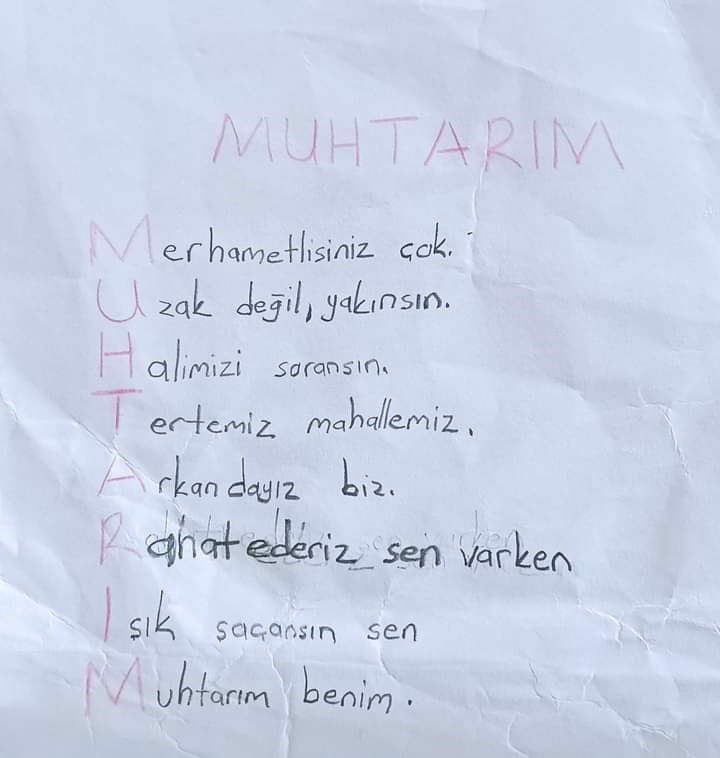 MUHTARIM
Merhametlisiniz çok.
Uzak değil, yakınsın.
Halimizi soransın.
Tertemiz mahallemiz.
Arkandayız biz.
Rahat ederiz sen varken
Işık saçansın sen
Muhtarım benim.